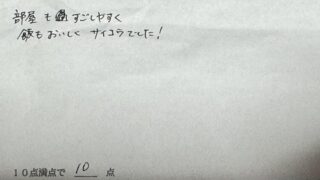 部屋もすごしやすく
飯もおいしく サイコウでした!
10点満点で 10 点